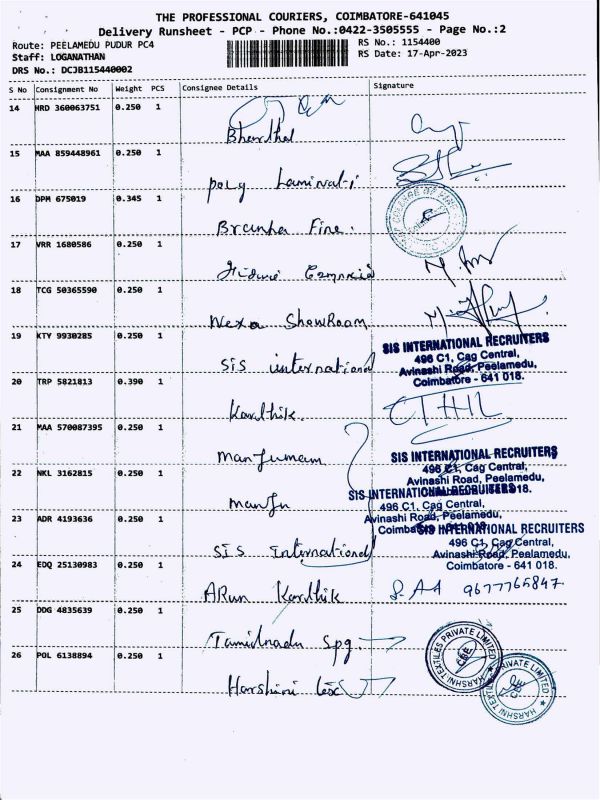 THE PROFESSIONAL COURIERS, COIMBATORE-641045
Delivery Runsheet - PCP - Phone No.:0422-3505555 - Page No.:2
Route: PEELAMEDU PUDUR PC4
RS No.: 1154400
Staff: LOGANATHAN
RS Date: 17-Apr-2023
DRS No.: DCJB115440002
S No Consignment No Weight PCS Consignee Details Signature
14 HRD 360063751 0.250 1
15 MAA 859448961 0.250 1
poly
16 DPM 675019 0.345 1
Fine.
17 VRR 1680586 0.250 1
18 TCG 50365590 0.250 1
Nexa ShowRoom
19 KTY 9930285 0.250 1
SIS international
SIS INTERNATIONAL RECRUITERS
496 C1, Cag Central,
Avinashi Road, Peelamedu,
Coimbatore - 641 018.
20 TRP 5821813 0.390 1
Karthik.
21 MAA 570087395 0.250 1
SIS INTERNATIONAL RECRUITERS
496 C1, Cag Central,
Avinashi Road, Peelamedu,
22 NKL 3162815 0.250 1
SIS INTERNATIONAL RECRUITERS
496 C1, Cag Central,
Avinashi Road, Peelamedu,
23 ADR 4193636 0.250 1
SIS International
SIS INTERNATIONAL RECRUITERS
496 C1, Cag Central,
Avinashi Road, Peelamedu,
Coimbatore - 641 018.
24 EDQ 25130983 0.250 1
ARun Karthik 9677765847
25 DDG 4835639 0.250 1
Tamilnadu Spg.
HARSHNI TEXTILES PRIVATE LIMITED
CBE
26 POL 6138894 0.250 1
Harshini tex
HARSHNI TEXTILES PRIVATE LIMITED